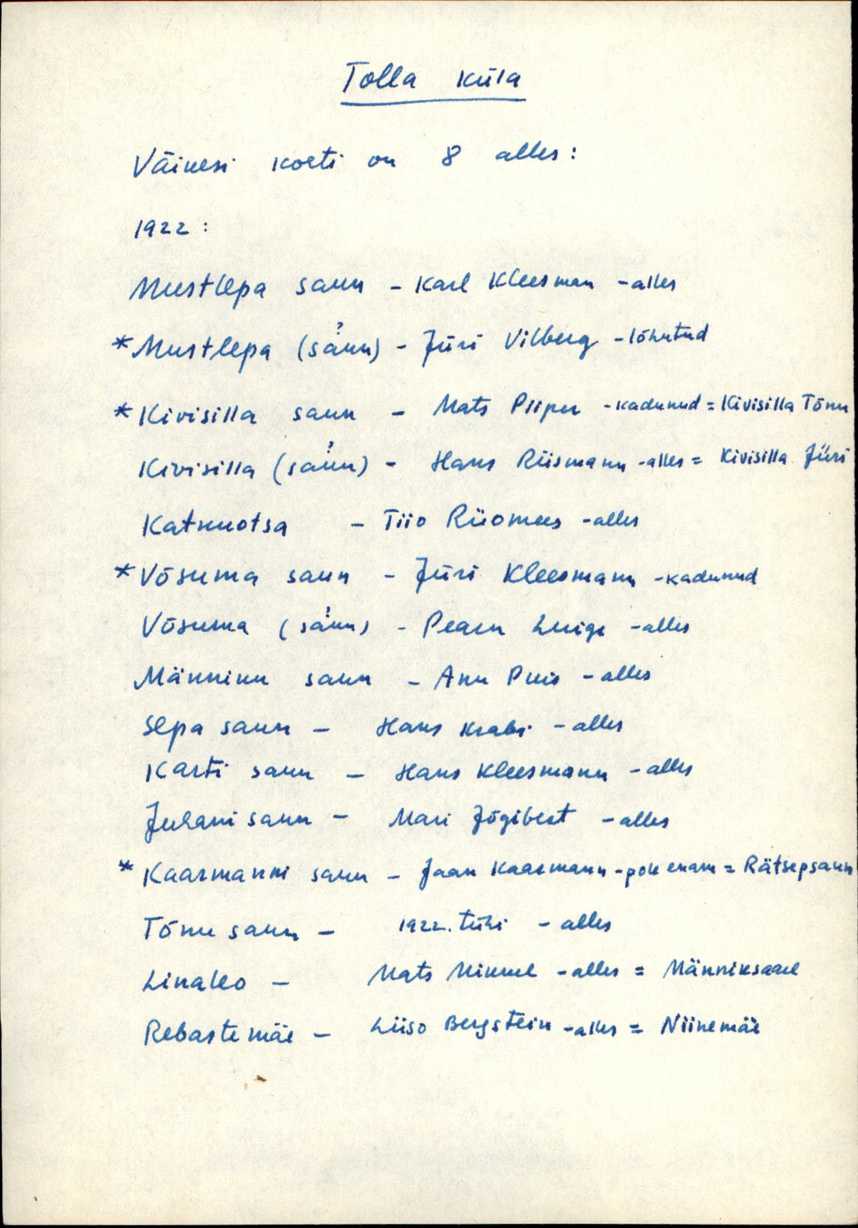 Tolla küla
Väinesi korti on 8 alles:
1922:
Mustlepa saun - Karl Kleesman - alles
*Mustlepa (saun)? - Jüri Vilberg - lõhutud
*Kivisilla saun - Mats Piiper - kadunud = Kivisilla Tõnu
Kivisilla (saun)? - Hans Riismann - alles = Kivisilla Jüri
Katkuotsa - Tiio Riiomees - alles
*Võsuma saun - Jüri Kleesmann - kadunud
Võsuma (saun)? - Peacu Luige - alles
Männinu saun - Anu Puis - alles
Sepa saun - Hans Krabi - alles
Karti saun - Hans Kleesmann - alles
Juhani saun - Mari Jõgibest - alles
*Kaarmanni saun - Jaan Kaarmann - pole enam = Rätsepsaun
Tõnu saun - 1922. tühi - alles
Linaleo - Mats Mikkel - alles = Männiksaare
Rebastemäe - Liiso Bergstein - alles = Niinemäe